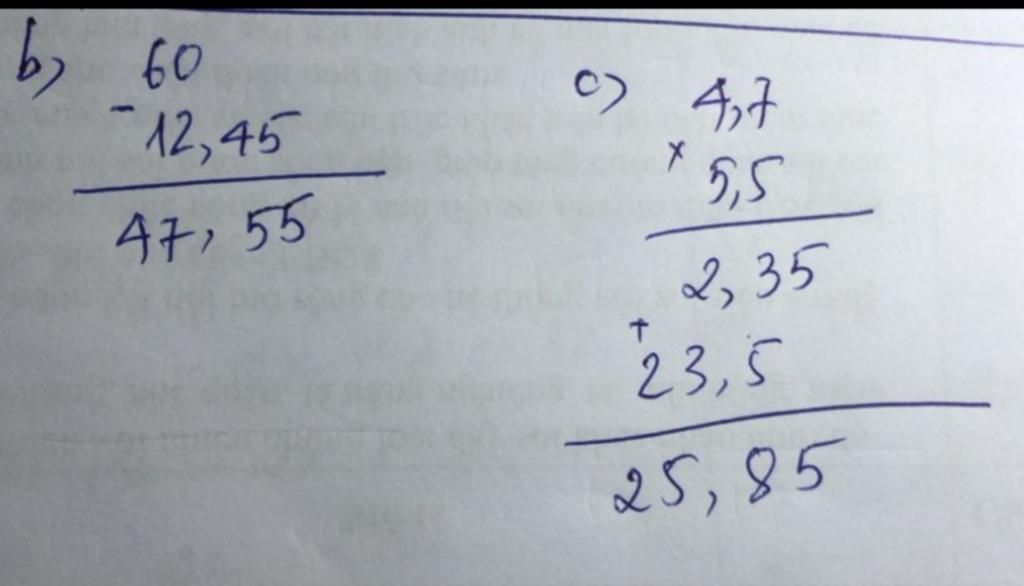 b) 60
- 12,45
47,55
c) 4,7
x 5,5
2,35
+ 23,5
25,85